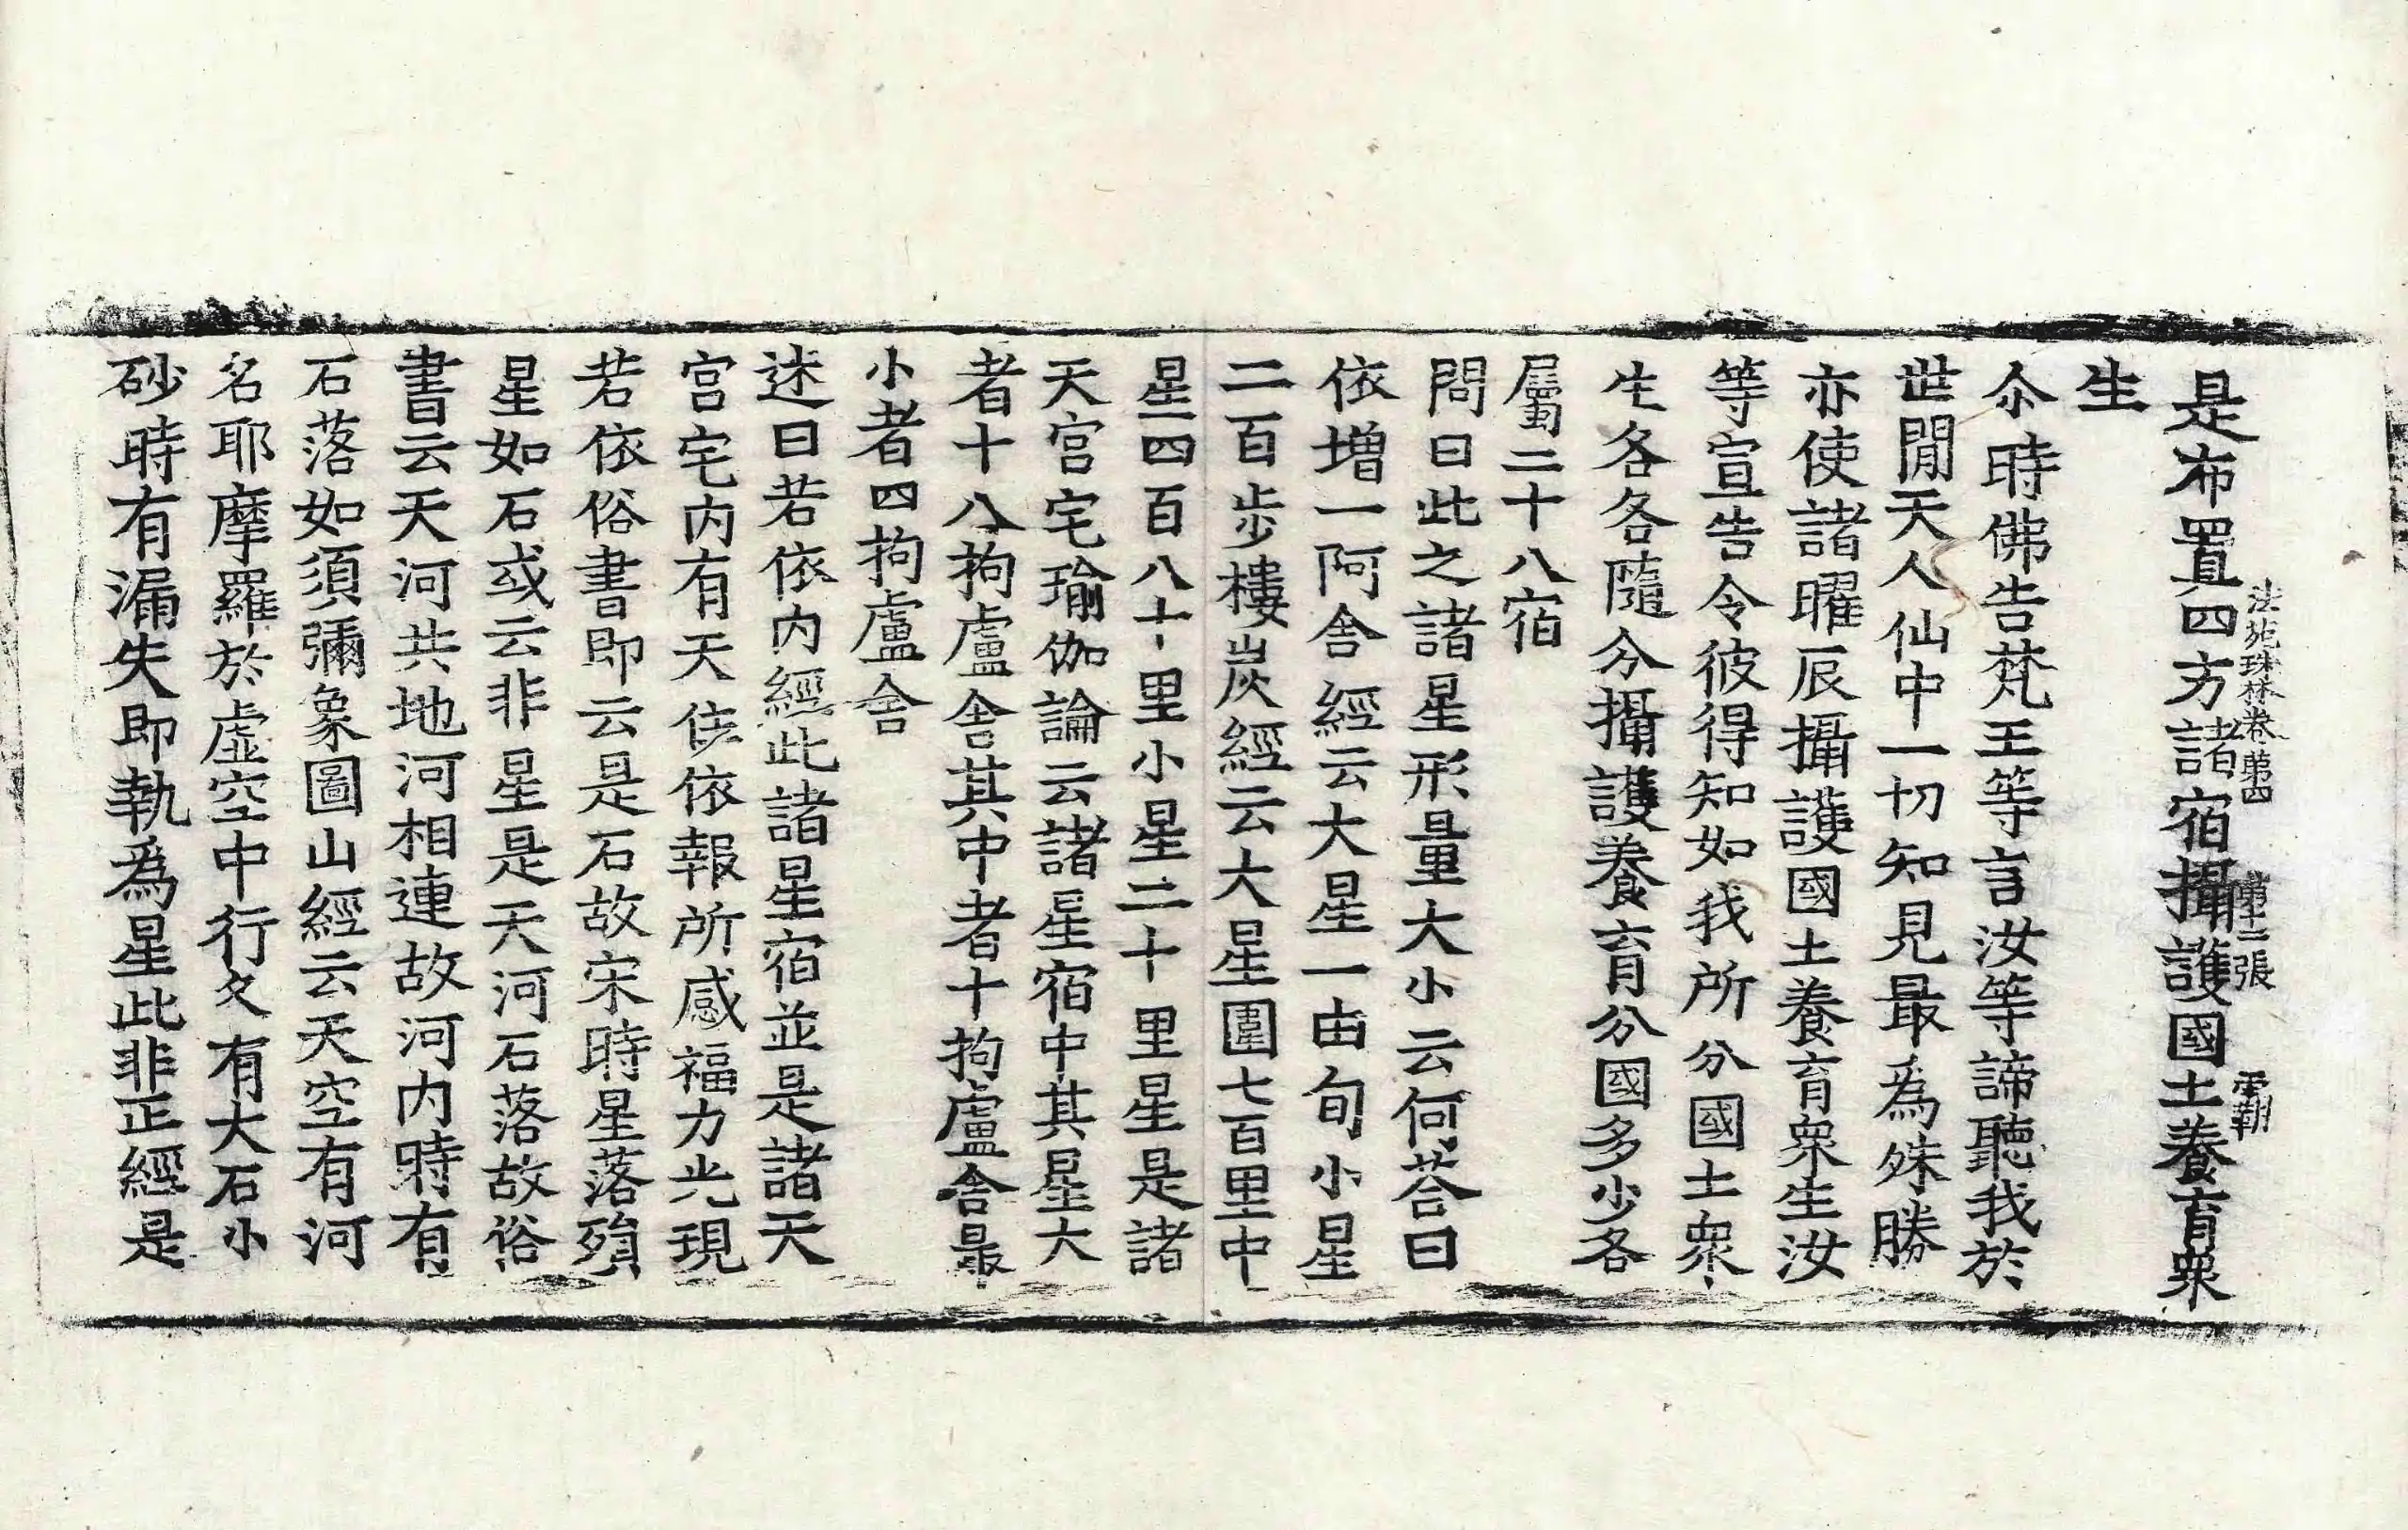 法苑珠林卷第四 第十二張 覇
是布置四方諸宿攝護國土養育衆
生
尒時佛告梵王等言汝等諦聽我於
世閒天人仙中一切知見最爲殊勝
亦使諸曜辰攝護國土養育衆生汝
等宣告令彼得知如我所分國土衆
生各各隨分攝護養育分國多少各
屬二十八宿
問曰此之諸星形量大小云何荅曰
依增一阿含經云大星一由旬小星
二百步樓炭經云大星圍七百里中
星四百八十里小星二十里星是諸
天宮宅瑜伽論云諸星宿中其星大
者十八拘盧舍其中者十拘盧舍最
小者四拘盧舍
述曰若依內經此諸星宿並是諸天
宮宅內有天依報所感福力光現
若依俗書即云是石故宋時星落殞
星如石或云非星是天河石落故俗
書云天河共地河相連故河內時有
石落如須彌象圖山經云天空有河
名耶摩羅於虛空中行又有大石小
砂時有漏失即執爲星此非正經是